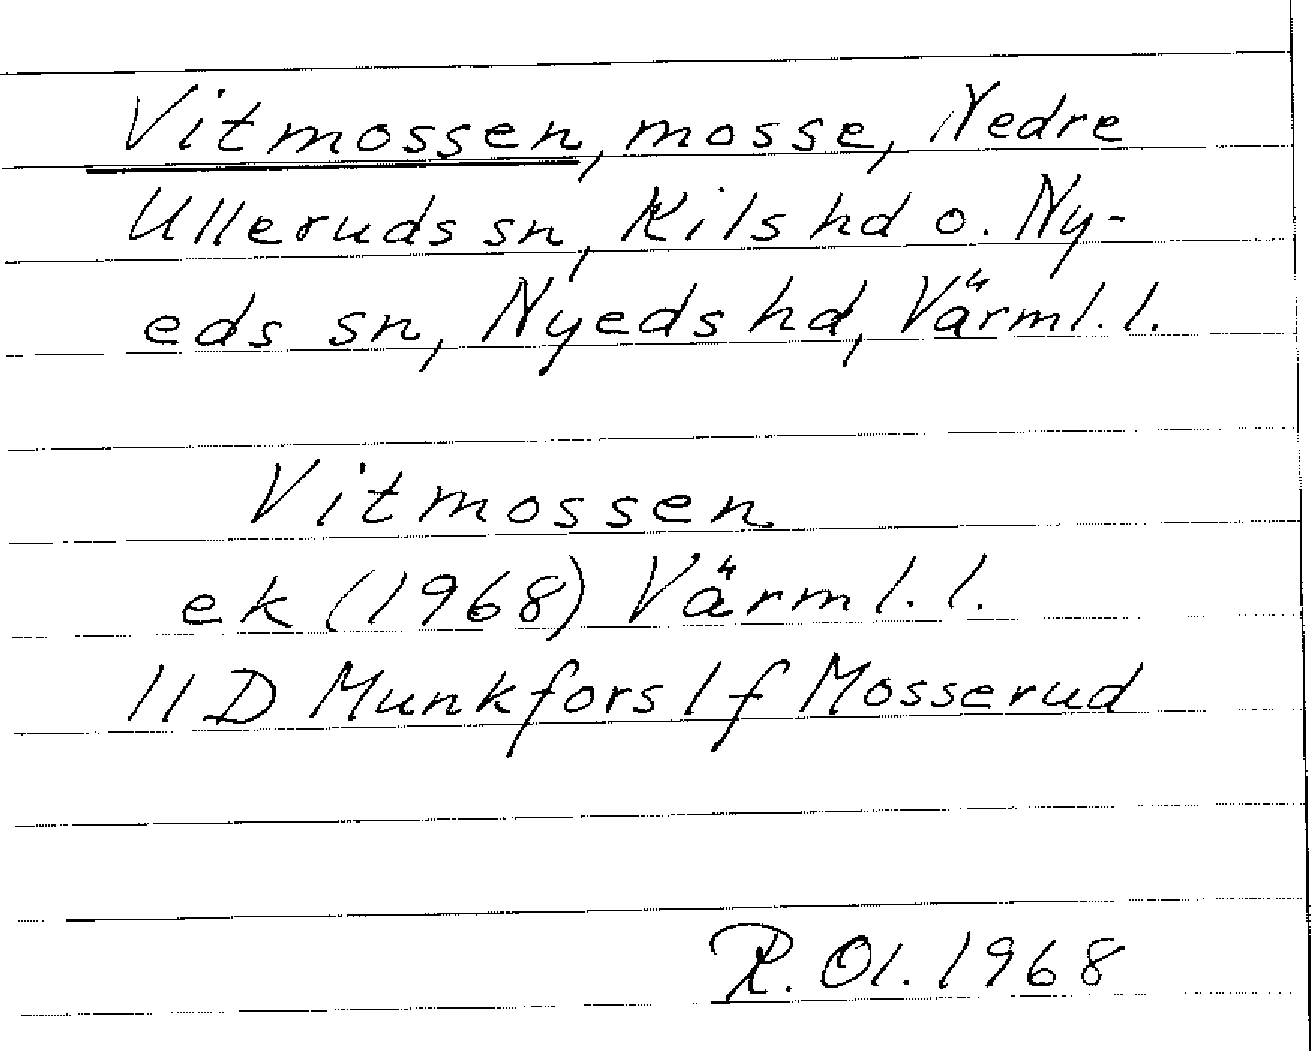 Vitmossen, mosse, Nedre
Ulleruds sn, Kils hd o. Ny-
eds sn, Nyeds hd, Värml. l.
Vitmossen
ek (1968) Värml. l.
11 D Munkfors 1 f Mosserud
R. Ol. 1968